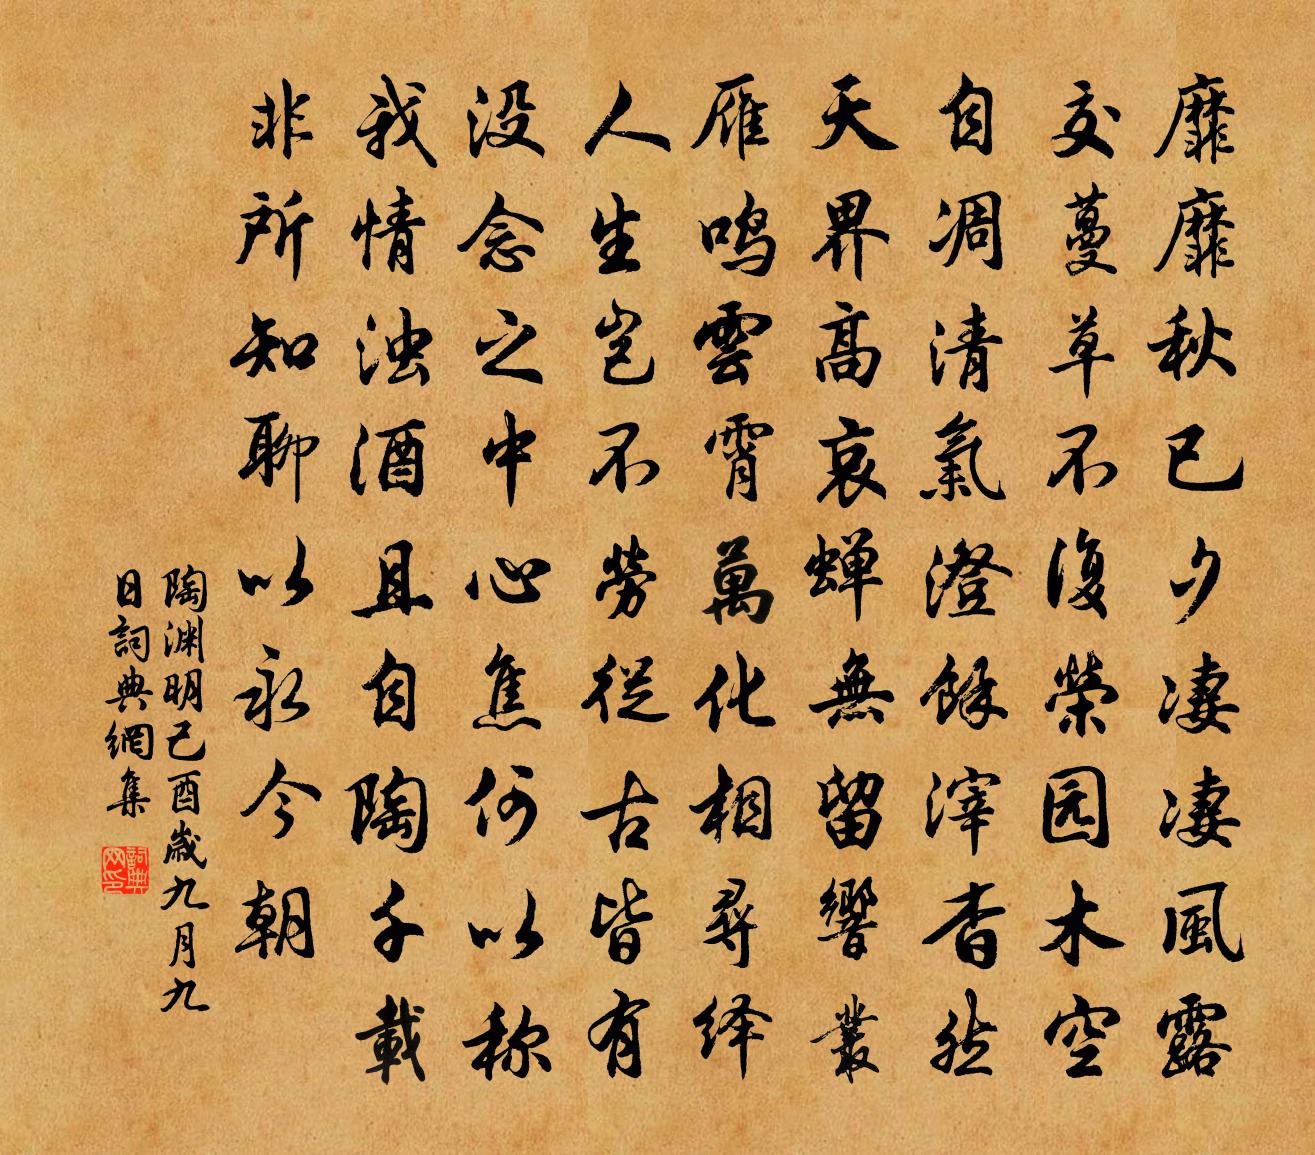 靡靡秋已夕凄凄風露
交蔓草不復榮园木空
自凋清氣澄餘滓杳然
天界高哀蝉無留響叢
雁鸣雲霄萬化相尋绎
人生岂不勞從古皆有
没念之中心焦何以称
我情浊酒且自陶千載
非所知聊以永今朝
陶渊明己酉歲九月九
日詞典網集
詞典
网印